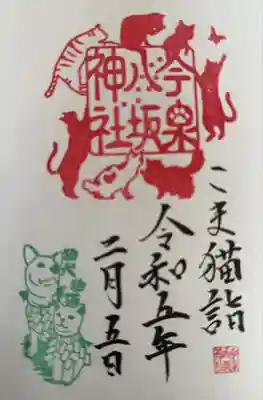 今泉
八坂
神社
こま猫詣
令和五年
二月五日